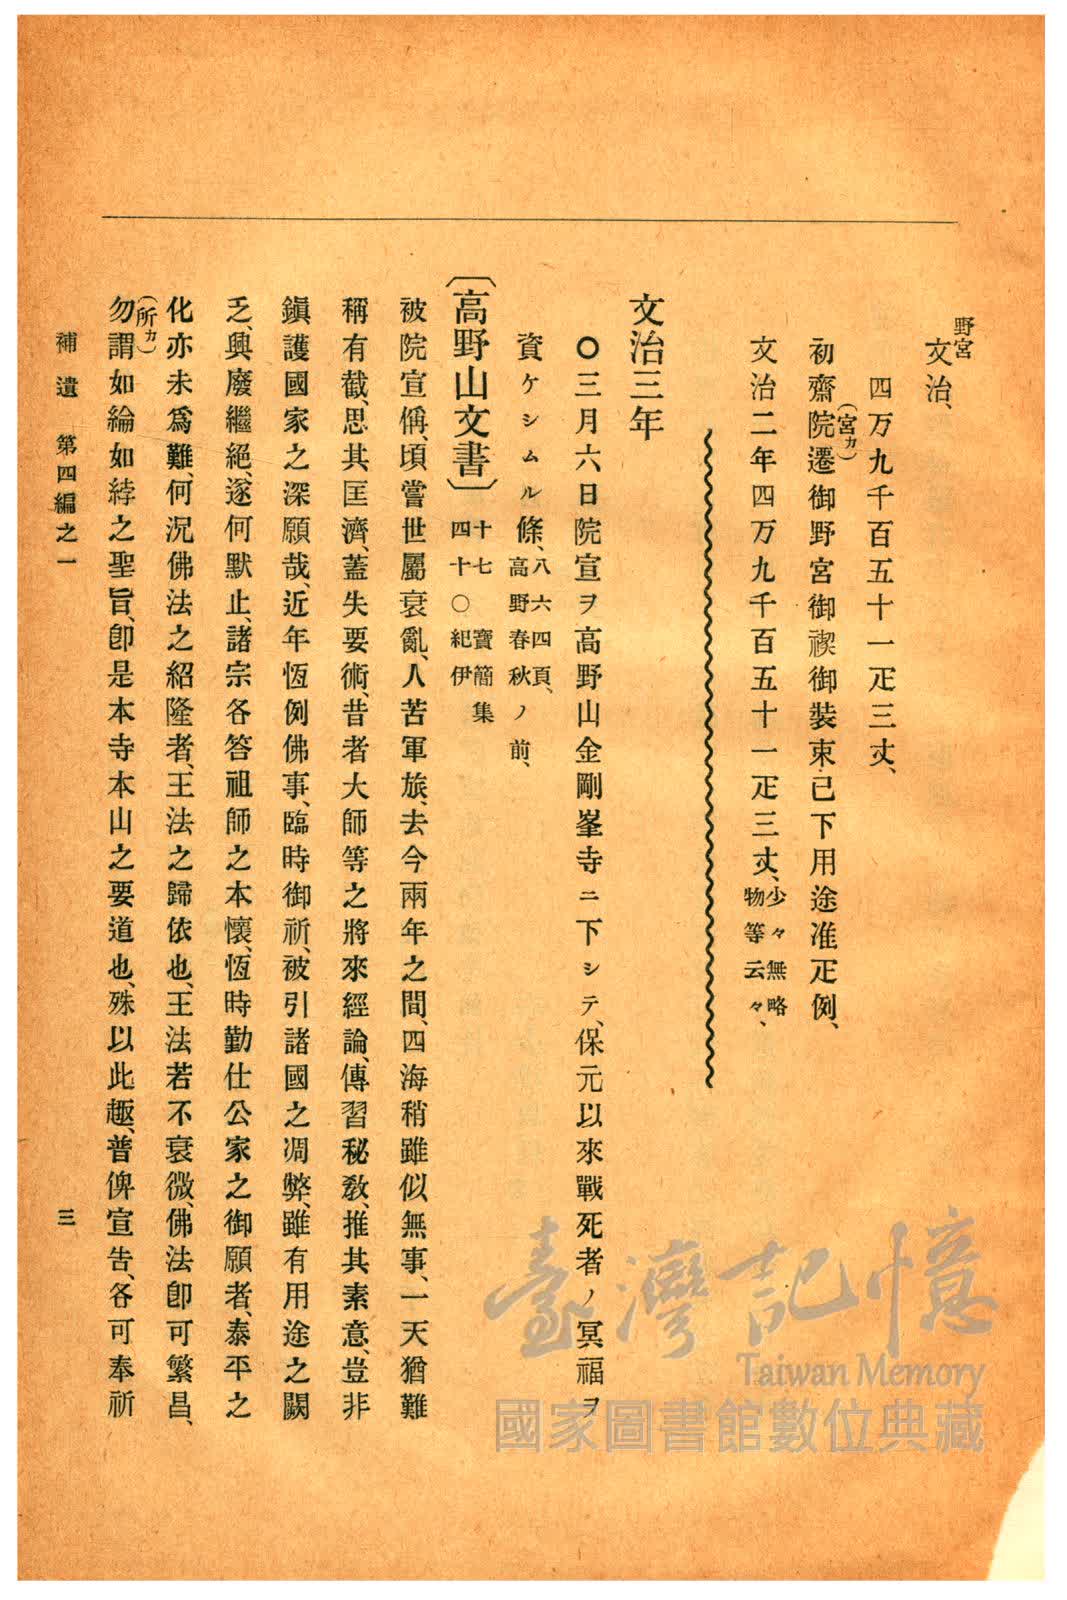 野宮
文治、
四万九千百五十一疋三丈、
初齋院遷御野宮御禊御裝束已下用途准疋例、
(宮カ)
文治二年四万九千百五十一疋三丈、少々無略物等云々、
文治三年
〇三月六日院宣ヲ高野山金剛峯寺ニ下シテ、保元以來戰死者ノ冥福ヲ
資ケシムル條、八六四頁、高野春秋ノ前、
〔高野山文書〕十七 寶簡集四十〇紀伊
被院宣偁、頃嘗世屬衰亂、人苦軍旅、去今兩年之間、四海稍雖似無事、一天猶難
稱有截、思其匡濟、蓋失要術、昔者大師等之將來經論、傳習秘敎、推其素意、豈非
鎭護國家之深願哉、近年恆例佛事、臨時御祈、被引諸國之凋弊、雖有用途之闕
乏、興廢繼絕、遂何默止、諸宗各答祖師之本懷、恆時勤仕公家之御願者、泰平之
化亦未爲難、何況佛法之紹隆者、王法之歸依也、王法若不衰微、佛法卽可繁昌、
(所カ)
勿謂如綸如綍之聖旨、卽是本寺本山之要道也、殊以此趣、普俾宣告、各可奉祈
補遺 第四編之一
三
臺灣記憶
Taiwan Memory
國家圖書館數位典藏